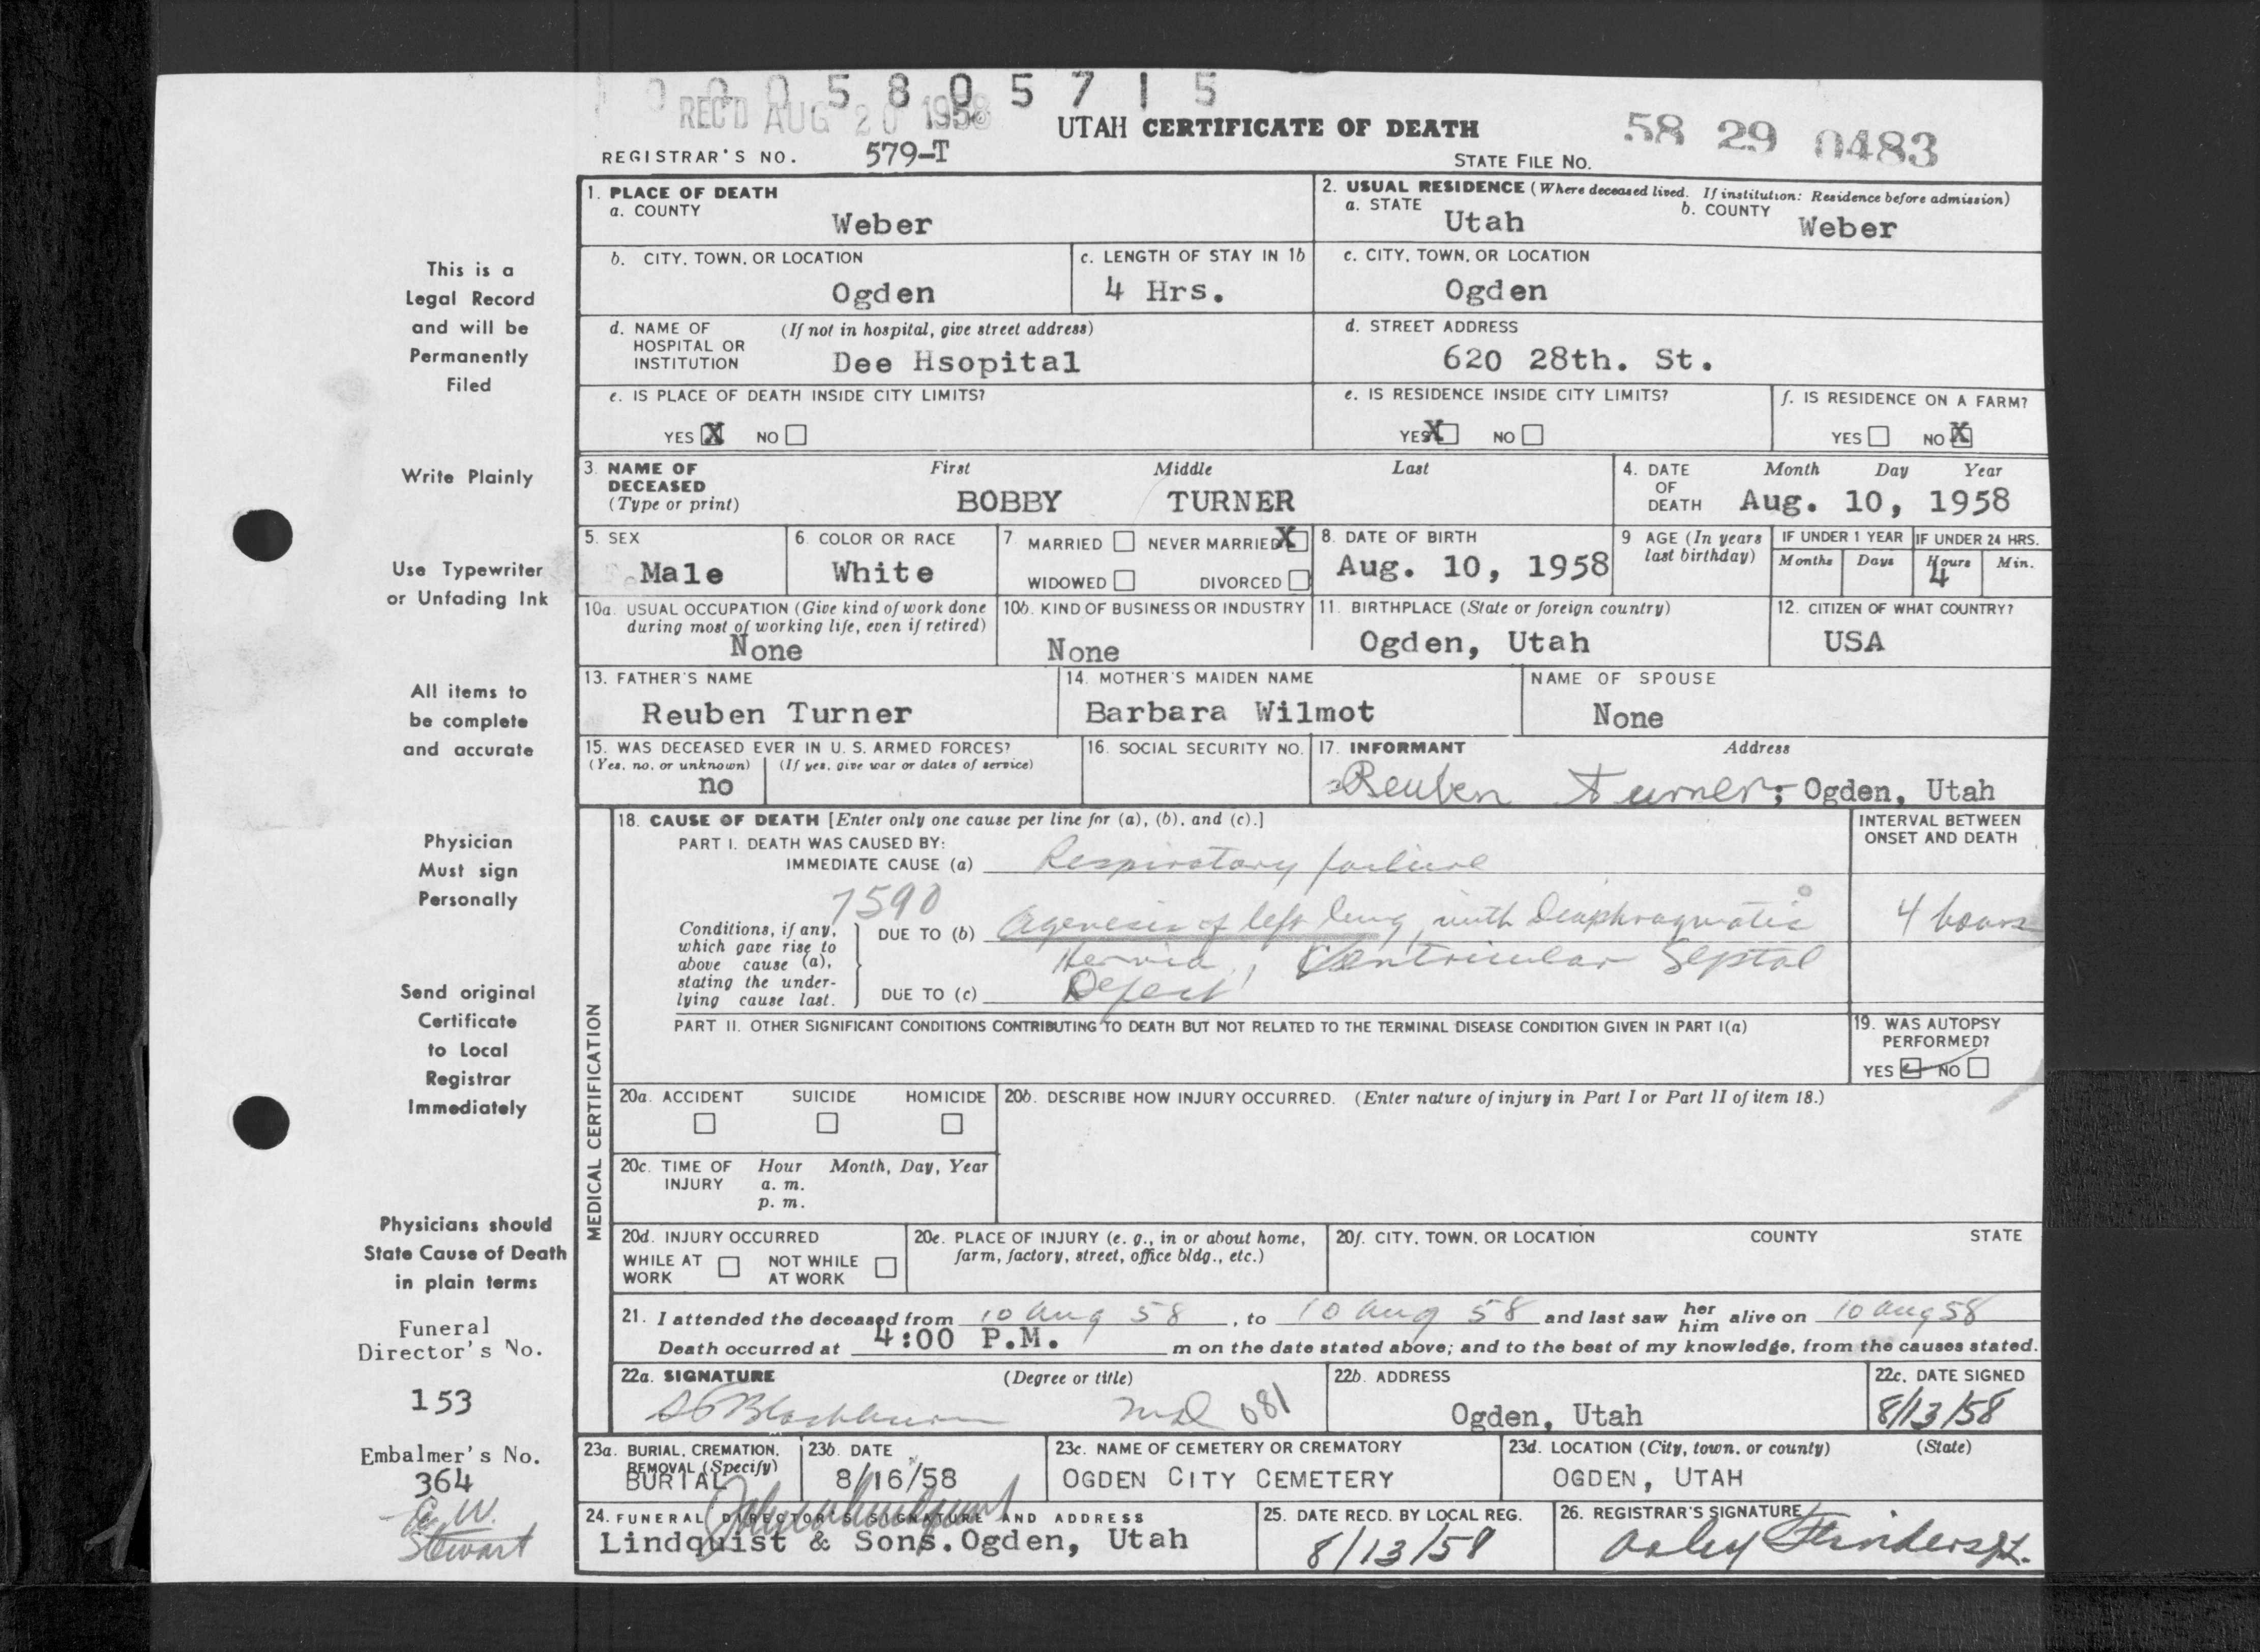 0 0 0 5 8 0 5 7 1 5
REC'D AUG 20 1958
UTAH CERTIFICATE OF DEATH
58 29 0483
REGISTRAR'S NO. 579-T
STATE FILE NO.
1. PLACE OF DEATH
a. COUNTY
Weber
2. USUAL RESIDENCE (Where deceased lived. If institution: Residence before admission)
a. STATE
Utah
b. COUNTY
Weber
b. CITY, TOWN, OR LOCATION
Ogden
c. LENGTH OF STAY IN 1b
4 Hrs.
c. CITY, TOWN, OR LOCATION
Ogden
d. NAME OF HOSPITAL OR INSTITUTION
(If not in hospital, give street address)
Dee Hsopital
d. STREET ADDRESS
620 28th. St.
e. IS PLACE OF DEATH INSIDE CITY LIMITS?
YES X NO
e. IS RESIDENCE INSIDE CITY LIMITS?
YES X NO
f. IS RESIDENCE ON A FARM?
YES NO X
3. NAME OF DECEASED
(Type or print)
First Middle Last
BOBBY TURNER
4. DATE OF DEATH
Month Day Year
Aug. 10, 1958
5. SEX
Male
6. COLOR OR RACE
White
7. MARRIED NEVER MARRIED X
WIDOWED DIVORCED
8. DATE OF BIRTH
Aug. 10, 1958
9 AGE (In years last birthday)
IF UNDER 1 YEAR
Months Days
IF UNDER 24 HRS.
Hours Min.
4
10a. USUAL OCCUPATION (Give kind of work done during most of working life, even if retired)
None
10b. KIND OF BUSINESS OR INDUSTRY
None
11. BIRTHPLACE (State or foreign country)
Ogden, Utah
12. CITIZEN OF WHAT COUNTRY?
USA
13. FATHER'S NAME
Reuben Turner
14. MOTHER'S MAIDEN NAME
Barbara Wilmot
NAME OF SPOUSE
None
15. WAS DECEASED EVER IN U. S. ARMED FORCES?
(Yes, no, or unknown) (If yes, give war or dates of service)
no
16. SOCIAL SECURITY NO.
17. INFORMANT Address
Reuben Turner, Ogden, Utah
MEDICAL CERTIFICATION
18. CAUSE OF DEATH [Enter only one cause per line for (a), (b), and (c).]
INTERVAL BETWEEN ONSET AND DEATH
PART I. DEATH WAS CAUSED BY:
IMMEDIATE CAUSE (a) Respiratory failure
7590
Conditions, if any, which gave rise to above cause (a), stating the underlying cause last.
DUE TO (b) Agenesis of left lung, with Diaphragmatic
4 hours
Hernia, Ventricular Septal
DUE TO (c) Defect
PART II. OTHER SIGNIFICANT CONDITIONS CONTRIBUTING TO DEATH BUT NOT RELATED TO THE TERMINAL DISEASE CONDITION GIVEN IN PART I(a)
19. WAS AUTOPSY PERFORMED?
YES NO
20a. ACCIDENT SUICIDE HOMICIDE
20b. DESCRIBE HOW INJURY OCCURRED. (Enter nature of injury in Part I or Part II of item 18.)
20c. TIME OF INJURY
Hour Month, Day, Year
a. m.
p. m.
20d. INJURY OCCURRED
WHILE AT WORK NOT WHILE AT WORK
20e. PLACE OF INJURY (e. g., in or about home, farm, factory, street, office bldg., etc.)
20f. CITY, TOWN, OR LOCATION COUNTY STATE
21. I attended the deceased from 10 Aug 58, to 10 Aug 58 and last saw her him alive on 10 Aug 58
Death occurred at 4:00 P.M. m on the date stated above; and to the best of my knowledge, from the causes stated.
22a. SIGNATURE (Degree or title)
Blackburn MD 081
22b. ADDRESS
Ogden, Utah
22c. DATE SIGNED
8/13/58
23a. BURIAL, CREMATION, REMOVAL (Specify)
BURIAL
23b. DATE
8/16/58
23c. NAME OF CEMETERY OR CREMATORY
OGDEN CITY CEMETERY
23d. LOCATION (City, town, or county) (State)
OGDEN, UTAH
24. FUNERAL DIRECTOR'S SIGNATURE AND ADDRESS
Lindquist & Sons. Ogden, Utah
25. DATE RECD. BY LOCAL REG.
8/13/58
26. REGISTRAR'S SIGNATURE
This is a
Legal Record
and will be
Permanently
Filed
Write Plainly
Use Typewriter
or Unfading Ink
All items to
be complete
and accurate
Physician
Must sign
Personally
Send original
Certificate
to Local
Registrar
Immediately
Physicians should
State Cause of Death
in plain terms
Funeral
Director's No.
153
Embalmer's No.
364
Stewart